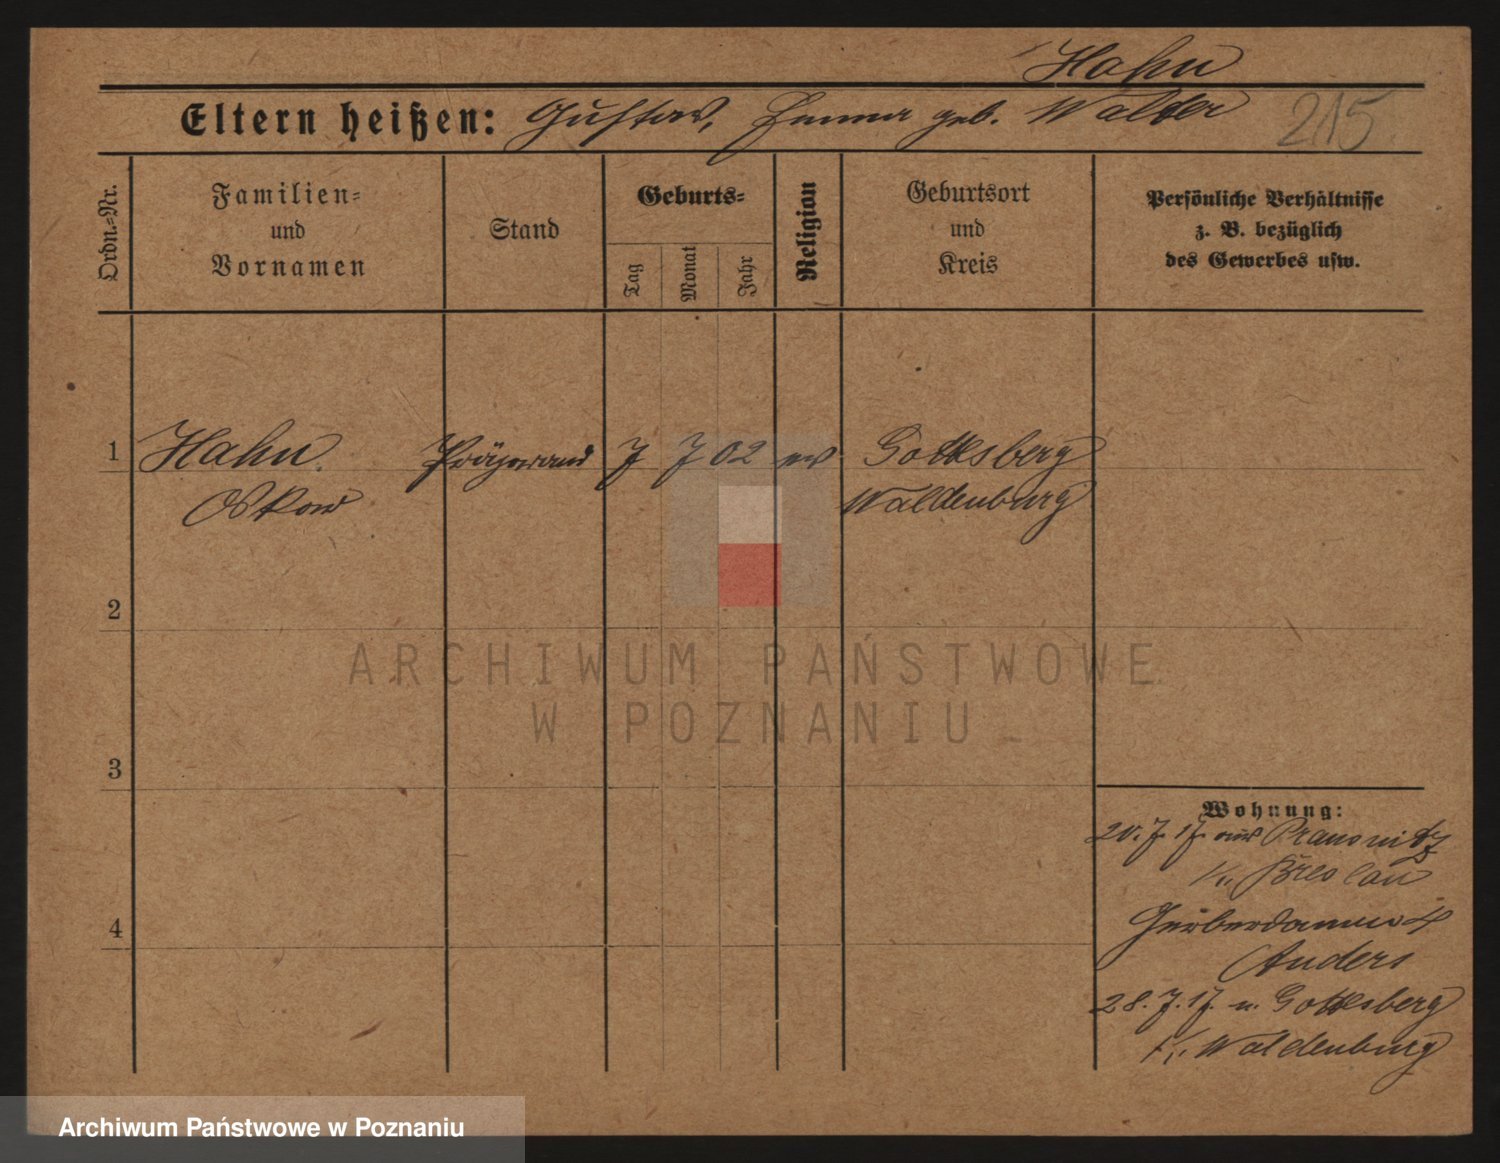 Hahn
Eltern heißen: Gustav, Emma geb. Walter
215
Ordn.-Nr.
Familien-
und
Vornamen
Stand
Geburts-
Tag
Monat
Jahr
Religion
Geburtsort
und
Kreis
Persönliche Verhältnisse
z. B. bezüglich
des Gewerbes usw.
1 Hahn 7 7 02 ev Gottesberg
Oskar Waldenburg
2
3
4
Wohnung:
20.7.17. aus Prausnitz
Breslau
Gerberdamm 4
Anders
28.7.17. n. Gottesberg
Waldenburg
ARCHIWUM PAŃSTWOWE
W POZNANIU
Archiwum Państwowe w Poznaniu